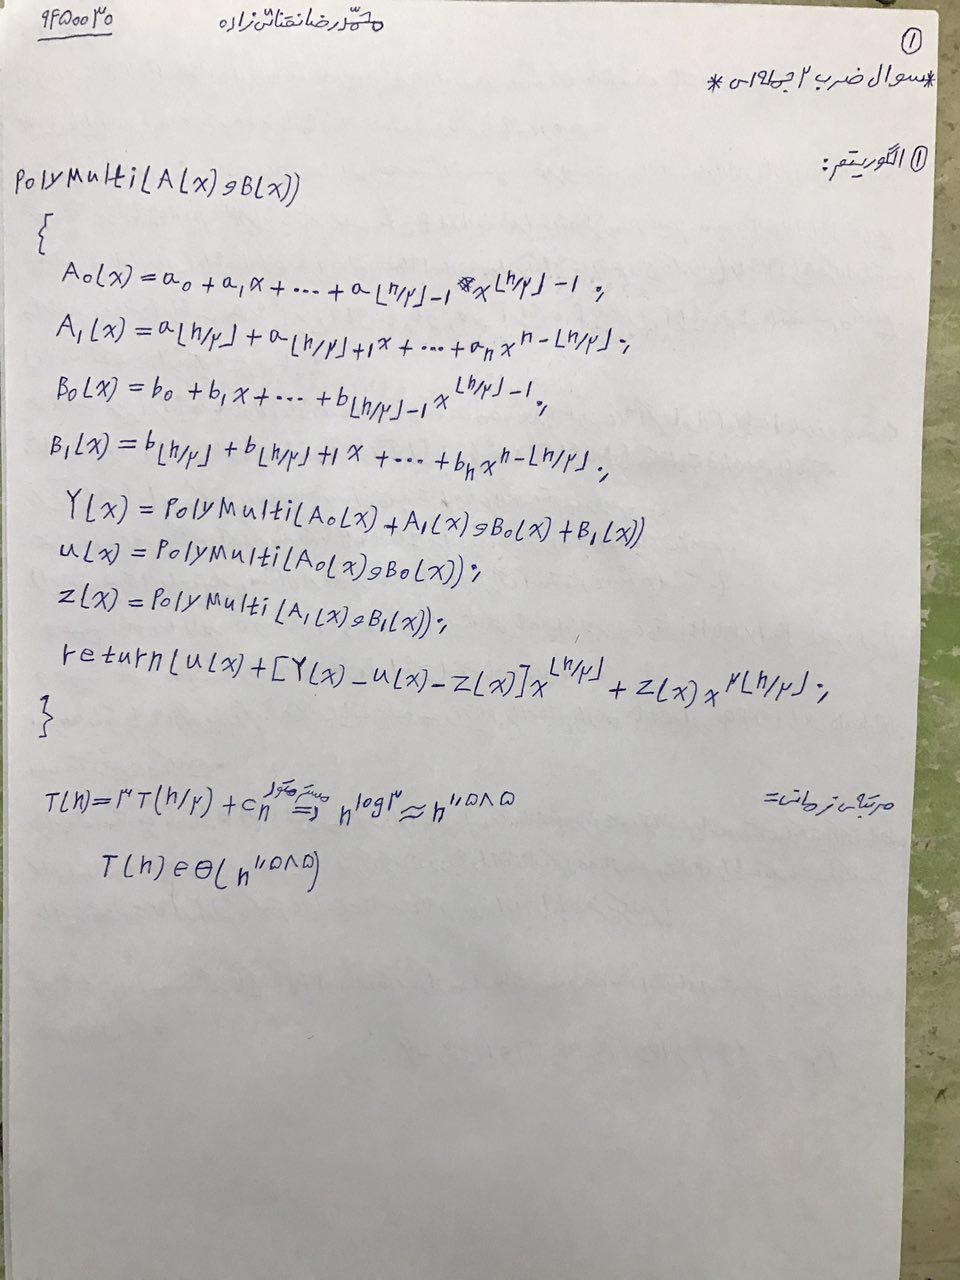 ۹۴۵۰۰۳۰ محمدرضا نقاش زاده
①
*سوال ضرب ۲ جمله‌ای*
① الگوریتم:
PolyMulti(A(x) و B(x))
{
A₀(x) = a₀ + a₁x + ... + a⌊n/۲⌋-۱ x^⌊n/۲⌋-۱ ;
A₁(x) = a⌊n/۲⌋ + a⌊n/۲⌋+۱ x + ... + aₙ x^n-⌊n/۲⌋ ;
B₀(x) = b₀ + b₁x + ... + b⌊n/۲⌋-۱ x^⌊n/۲⌋-۱ ;
B₁(x) = b⌊n/۲⌋ + b⌊n/۲⌋+۱ x + ... + bₙ x^n-⌊n/۲⌋ ;
Y(x) = PolyMulti(A₀(x) + A₁(x) و B₀(x) + B₁(x))
u(x) = PolyMulti(A₀(x) و B₀(x));
z(x) = PolyMulti(A₁(x) و B₁(x));
return(u(x) + [Y(x) - u(x) - z(x)]x^⌊n/۲⌋ + z(x) x^۲⌊n/۲⌋ ;
}
مرتبه‌ی زمانی =
T(n) = ۳T(n/۲) + cn ⇒ n^log۳ ≈ n^۱,۵۸۵
T(n) ∈ θ(n^۱,۵۸۵)